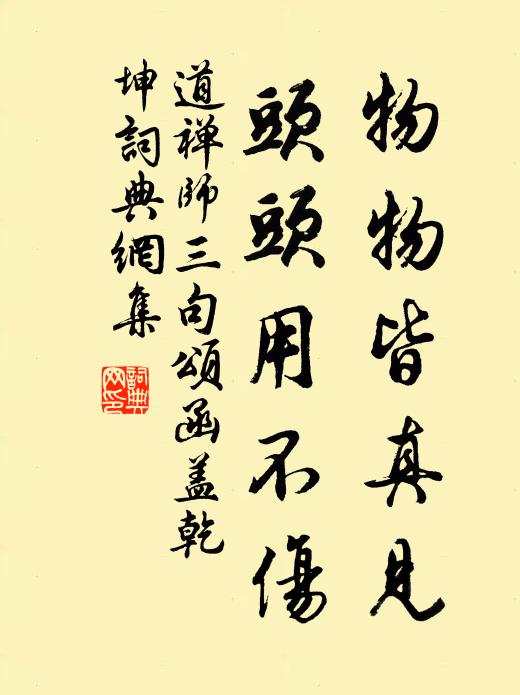 物物皆真見
頭頭用不傷
道禅师三句頌函盖乾
坤詞典網集
詞典
网印